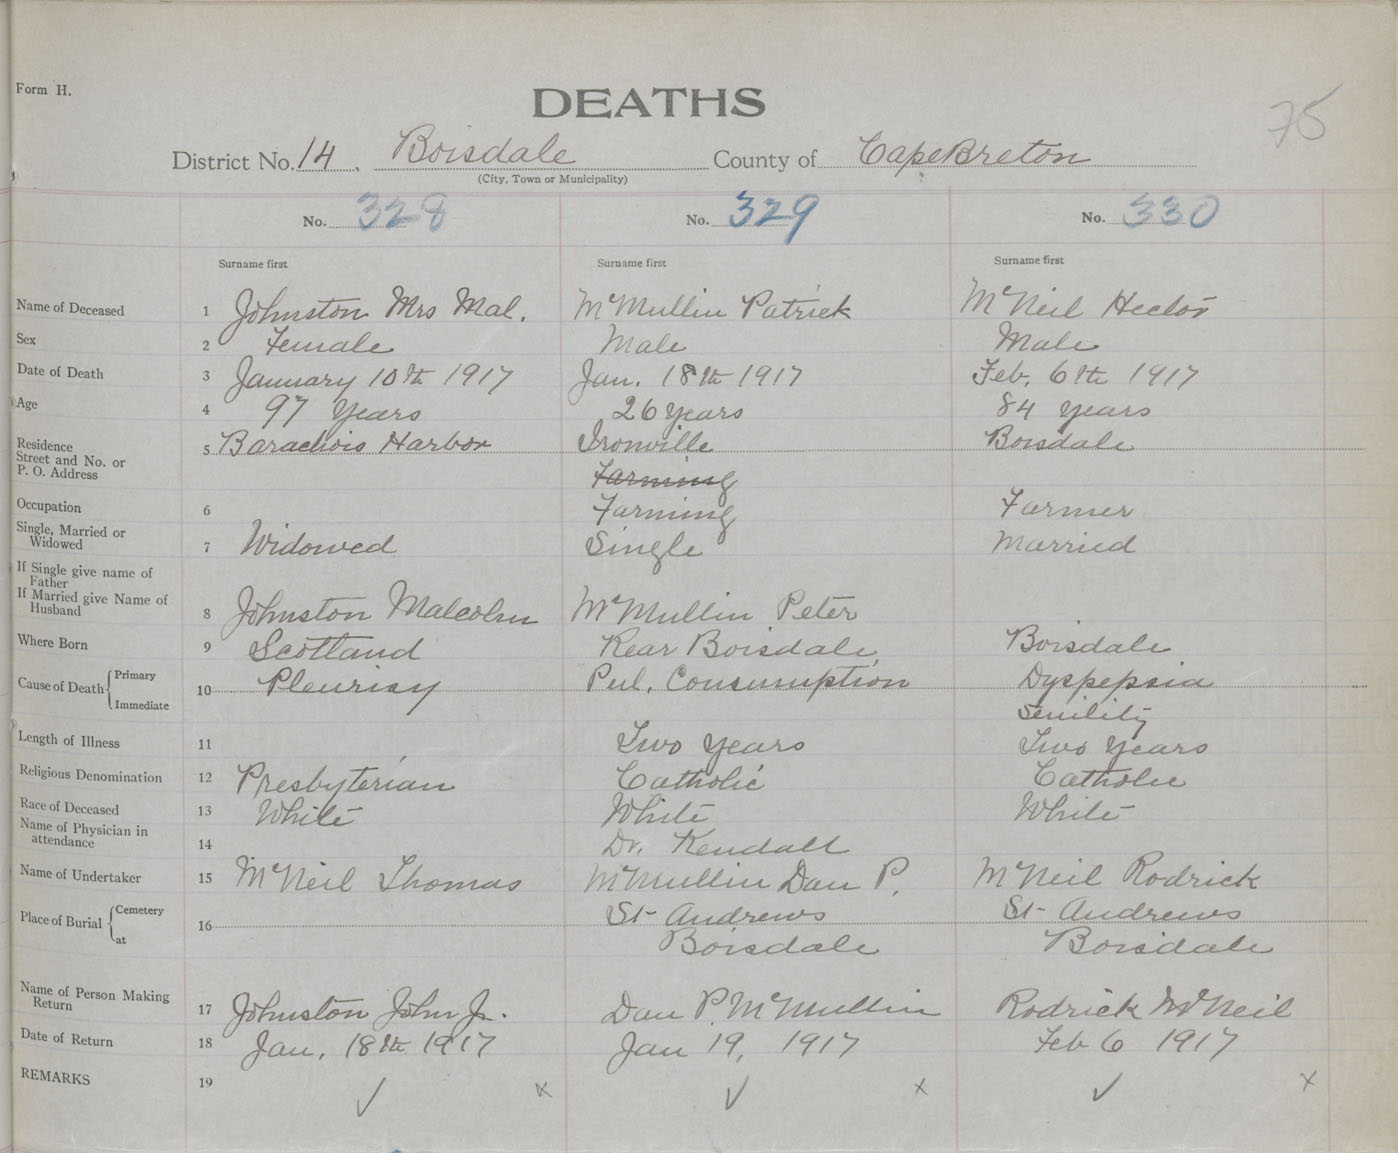 Form H.
DEATHS
75
District No. 14. Boisdale County of Cape Breton
(City, Town or Municipality)
No. 328 No. 329 No. 330
Surname first Surname first Surname first
Name of Deceased 1 Johnston Mrs Mal. McMullin Patrick McNeil Hector
Sex 2 Female Male Male
Date of Death 3 January 10th 1917 Jan. 18th 1917 Feb. 6th 1917
Age 4 97 Years 26 Years 84 years
Residence
Street and No. or
P. O. Address 5 Barachois Harbor Ironville Boisdale
Farming
Occupation 6 Farming Farmer
Single, Married or
Widowed 7 Widowed Single Married
If Single give name of
Father
If Married give Name of
Husband 8 Johnston Malcolm McMullin Peter
Where Born 9 Scotland Rear Boisdale Boisdale
Cause of Death { Primary
Immediate 10 Pleurisy Pul. Consumption Dyspepsia
Senility
Length of Illness 11 Two Years Two Years
Religious Denomination 12 Presbyterian Catholic Catholic
Race of Deceased 13 White White White
Name of Physician in
attendance 14 Dr. Kendall
Name of Undertaker 15 McNeil Thomas McMullin Dan P. McNeil Rodrick
Place of Burial { Cemetery
at 16 St Andrews St Andrews
Boisdale Boisdale
Name of Person Making
Return 17 Johnston John Jr. Dan P. McMullin Rodrick McNeil
Date of Return 18 Jan. 18th 1917 Jan 19, 1917 Feb 6 1917
REMARKS 19 ✓ x ✓ x ✓ x